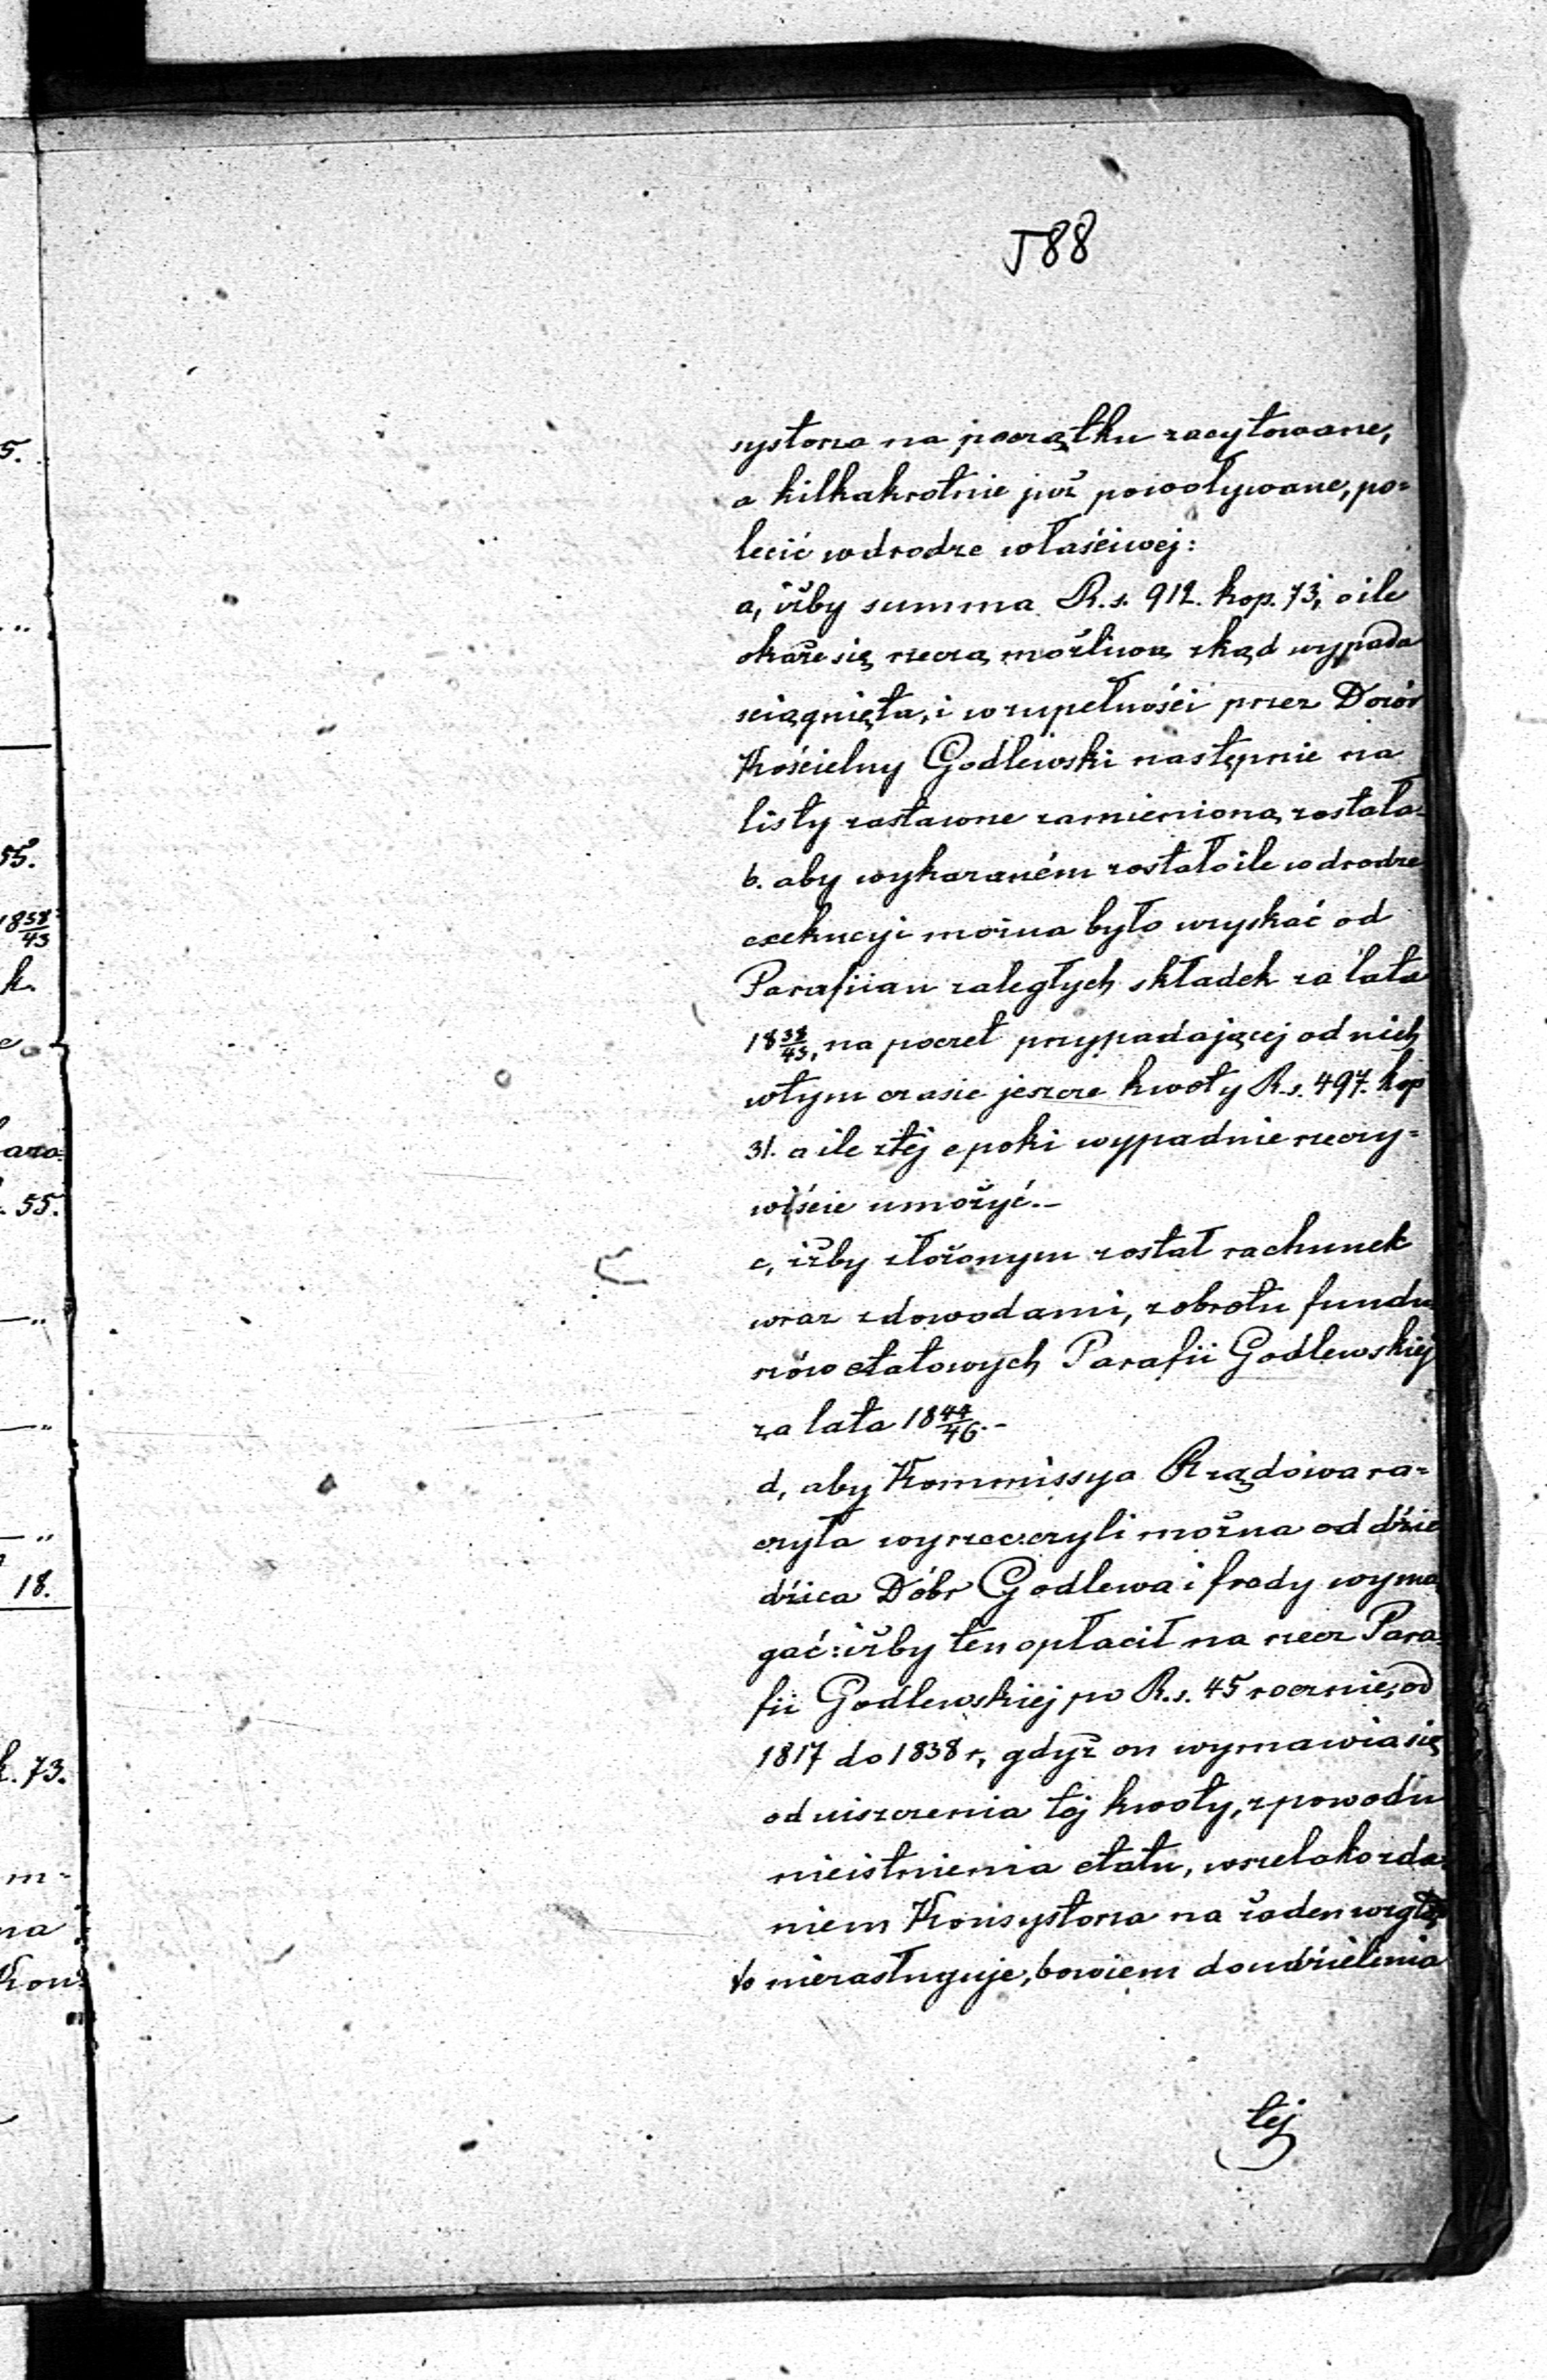 588
systorza na początku zacytowane,
a kilkakrotnie już powoływane, po=
lecić wdrodze właściwej:
a, iżby summa R.s. 912. kop. 73, oile
okaże się rzeczą możliwą zkąd wypada
sciągnięta, i wzupełności przez Dozór
Kościelny Godlewski następnie na
listy zastawne zamienioną została.
b. aby wykazaném zostało ile wdrodze
exekucyi można było uzyskać od
Parafiian zaległych składek za lata
18 38/43, na poczet przypadającej od nich
wtym czasie jeszcze kwoty R.s. 497. kop
31. a ile ztéj epoki wypadnie rzeczy=
wiście umożyć.-
c, iżby złożonym został rachunek
wraz zdowodami, zobrotu fundu
szów etatowych Parafii Godlewskiej
za lata 18 44/46.-
d, aby Kommissya Rządowa ra=
czyła wyrzec: czyli można od dzie
dzica Dóbr Godlewa i frady wyma
gać: iżby ten opłacił na rzecz Para
fii Godlewskiej po R.s. 45 rocznie, od
1817 do 1838 r, gdyż on wymawia się
od uiszczenia tej kwoty, zpowodu
nieistnienia etatu, wszelako zda=
niem Konsystorza na żaden wzglę
to niezasługuje, bowiem do udzielenia
tej
5.
55.
18 38/43
k.
55.
18.
k. 73.
m-
na
Kon